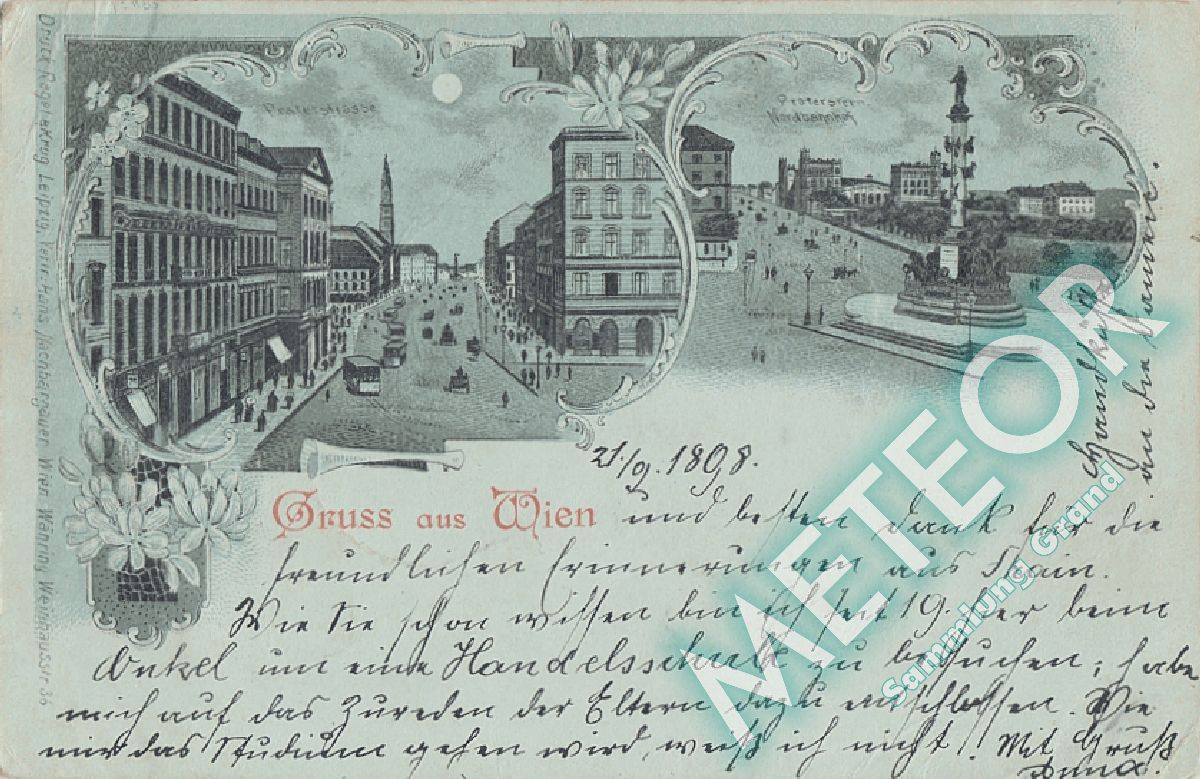 Praterstrasse
Praterstern
Nordbahnhof
21./9. 1898.
Gruss aus Wien
und besten Dank für die
freundlichen Erinnerungen aus Stain.
Wie Sie schon wissen bin ich seit 19. hier beim
Onkel um eine Handelsschule zu besuchen; habe
mich auf das Zureden der Eltern dazu entschlossen. Wie
mir das Studium gehen wird, weiß ich nicht! Mit Gruß
Handküße
an die Mama
METEOR
Sammlung Grand
Druck Regel & Krug, Leipzig. Wien Währing